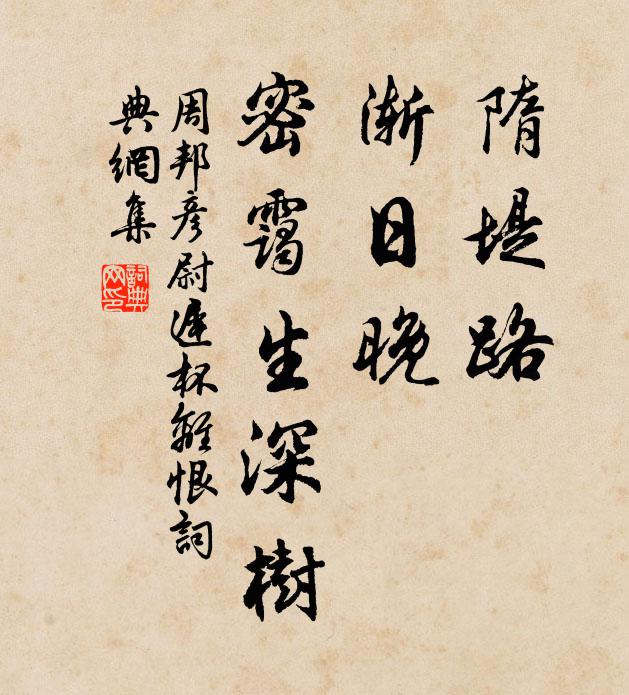 隋堤路
渐日晚
密霭生深樹
周邦彦尉遲杯離恨詞
典網集
詞典网印